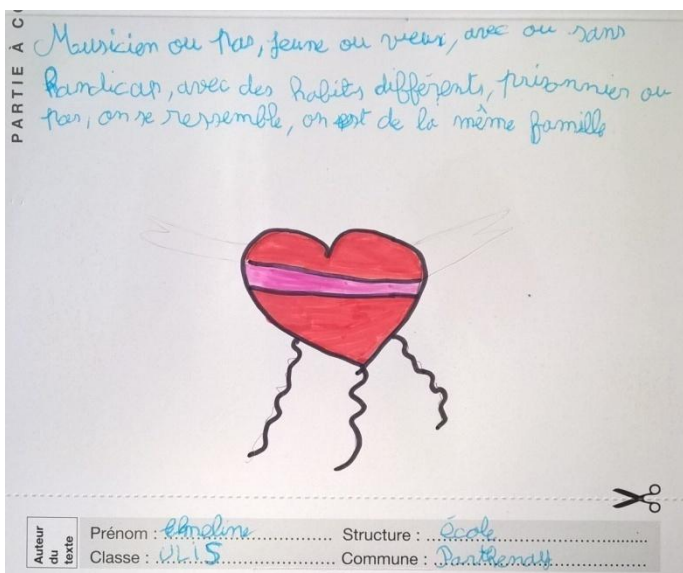 PARTIE À C
Musicien ou pas, jeune ou vieux, avec ou sans
handicap, avec des habits différents, prisonnier ou
pas, on se ressemble, on est de la même famille
Auteur du texte
Prénom : Emeline Structure : école
Classe : ULIS Commune : Parthenay